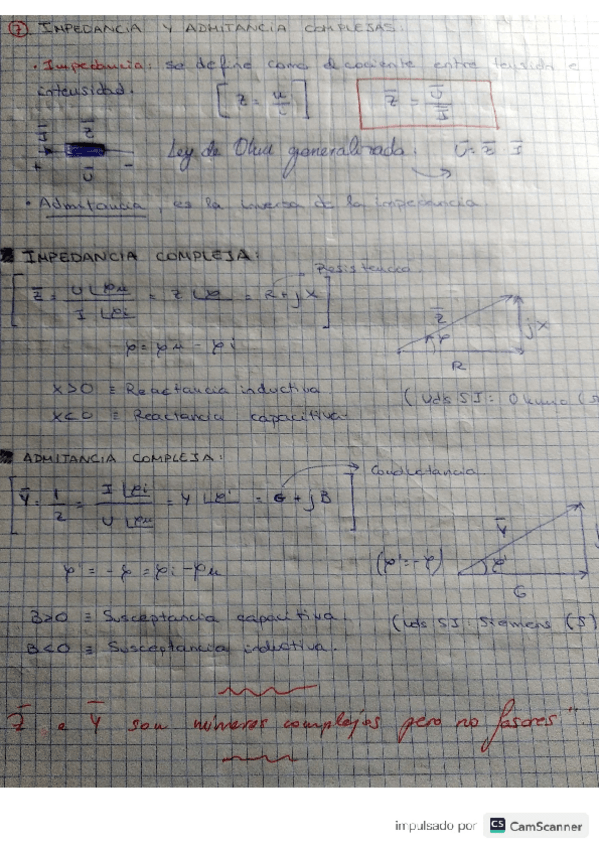 ⑦ IMPEDANCIA Y ADMITANCIA COMPLEJAS:
· Impedancia: se define como el cociente entre tensión e
intensidad. [Z = u/i] Z̅ = U̅/I̅
I̅ Z̅
+ U̅ -
Ley de Ohm generalizada: U̅ = Z̅ · I̅
· Admitancia, es la inversa de la impedancia
IMPEDANCIA COMPLEJA:
Resistencia
[Z̅ = U∠φu / I∠φi = Z∠φ = R + jX]
φ = φu - φi
Z̅ φ R jX
X>0 ≡ Reactancia inductiva
X<0 ≡ Reactancia capacitiva.
(Uds SI:
ADMITANCIA COMPLEJA:
Conductancia
[Y̅ = 1/Z̅ = I∠φi / U∠φu = Y∠φ' = G + jB]
φ' = -φ = φi - φu (φ' = -φ)
Y̅ φ' G
B>0 ≡ Susceptancia capacitiva.
B<0 ≡ Susceptancia inductiva.
(Uds SI: Siemens (S)
Z̅ e Y̅ son números complejos pero no fasores".
impulsado por CS CamScanner